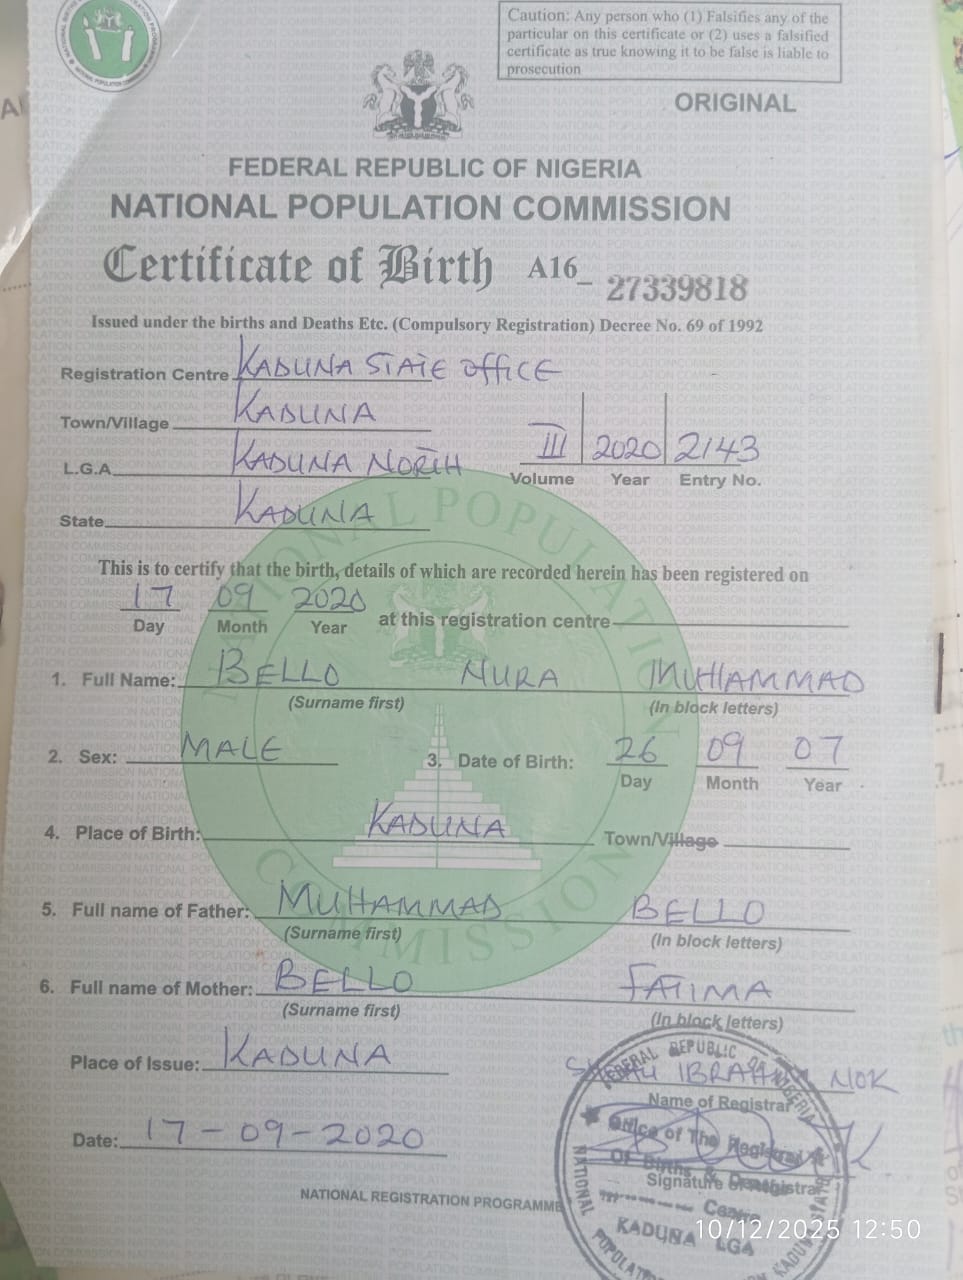 Caution: Any person who (1) Falsifies any of the
particular on this certificate or (2) uses a falsified
certificate as true knowing it to be false is liable to
prosecution
ORIGINAL
FEDERAL REPUBLIC OF NIGERIA
NATIONAL POPULATION COMMISSION
Certificate of Birth A16_ 27339818
Issued under the births and Deaths Etc. (Compulsory Registration) Decree No. 69 of 1992
Registration Centre KADUNA STATE OFFICE
Town/Village KADUNA
L.G.A. KADUNA NORTH
III 2020 2143
Volume Year Entry No.
State KADUNA
This is to certify that the birth, details of which are recorded herein has been registered on
17 09 2020
Day Month Year at this registration centre
1. Full Name: BELLO NURA MUHAMMAD
(Surname first) (In block letters)
2. Sex: MALE 3. Date of Birth: 26 09 07
Day Month Year
4. Place of Birth: KADUNA Town/Village
5. Full name of Father: MUHAMMAD BELLO
(Surname first) (In block letters)
6. Full name of Mother: BELLO FATIMA
(Surname first) (In block letters)
Place of Issue: KADUNA
IBRAHIM NOK
Name of Registrar
Date: 17-09-2020
Signature of Registrar
NATIONAL REGISTRATION PROGRAMME
FEDERAL REPUBLIC OF NIGERIA
Office of The Registrar
Of Births & Deaths
Centre
KADUNA LGA
NATIONAL POPULATION
KADUNA STATE
NATIONAL POPULATION COMMISSION
10/12/2025 12:50